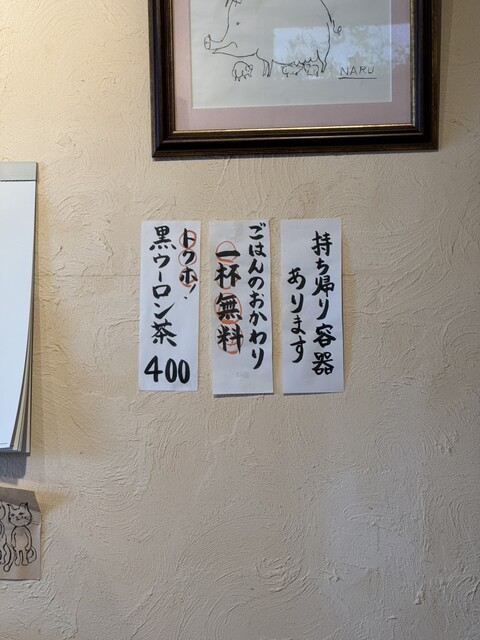 NARU
持ち帰り容器
あります
ごはんのおかわり
一杯無料
トクホ!
黒ウーロン茶
400